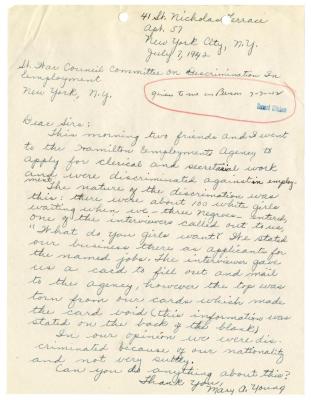 41 St. Nicholas Terrace
Apt. 57
New York City, N.Y.
July 7, 1942
St. War Council Committee On Discrimination In
Employment
New York, N.Y.
given to me in Person 7-7-42
Dear Sirs:
This morning two friends and I went
to the Hamilton Employment Agency to
apply for clerical and secretarial work
and were discriminated against in employ-
ment.
The nature of the discrimination was
this: there were about 100 white girls
waiting when we three Negroes entered,
one of the interviewers called out to us,
"What do you girls want? We stated
our business there as applicants for
the named jobs. The interviewer gave
us a card to fill out and mail
to the agency, however the top was
torn from our cards which made
the card void (this information was
stated on the back of the blank)
In our opinion we were dis-
criminated because of our nationality
and not very subtly.
Can you do anything about this?
Thank you,
Mary A. Young